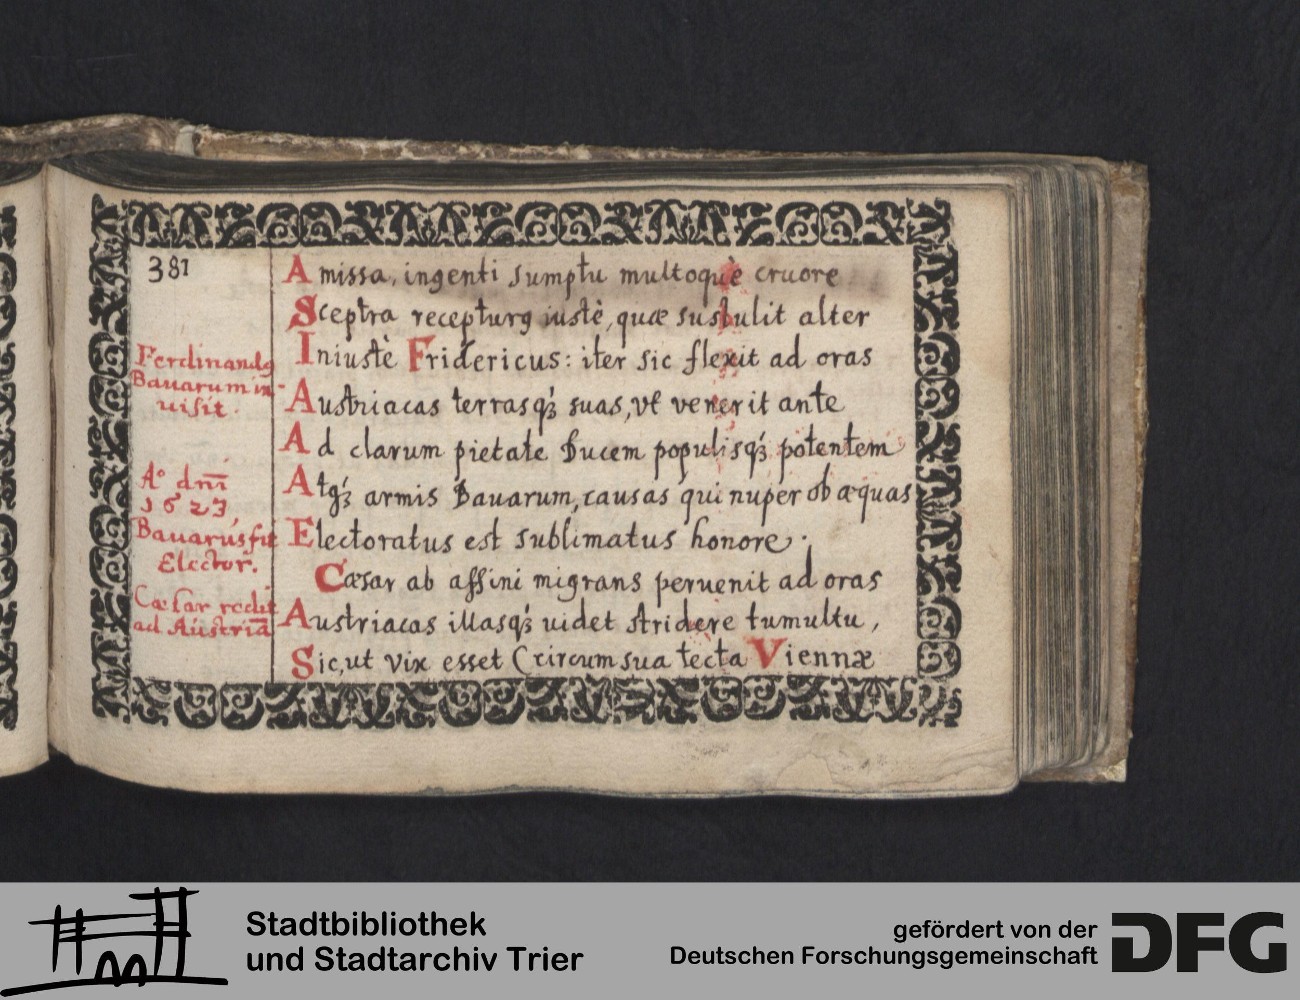 381
Amissa, ingenti sumptu multoquè cruore
Sceptra recepturꝰ iustè, quæ sustulit alter
Iniustè Fridericus: iter sic flexit ad oras
Ferdinandꝰ
Bauarum in-
uisit.
Austriacas terrasqȝ́ suas, vt venerit ante
Ad clarum pietate Ducem populisqȝ́ potentem
Aº dnī
1623,
Atqȝ́ armis Bauarum, causas qui nuper ob æquas
Bauarus fit
Elector.
Electoratus est sublimatus honore.
Cæsar ab affini migrans peruenit ad oras
Cæsar redit
ad Austriā
Austriacas illasqȝ́ uidet stridere tumultu,
Sic, ut vix esset circum sua tecta Viennæ
Stadtbibliothek
und Stadtarchiv Trier
gefördert von der
Deutschen Forschungsgemeinschaft
DFG